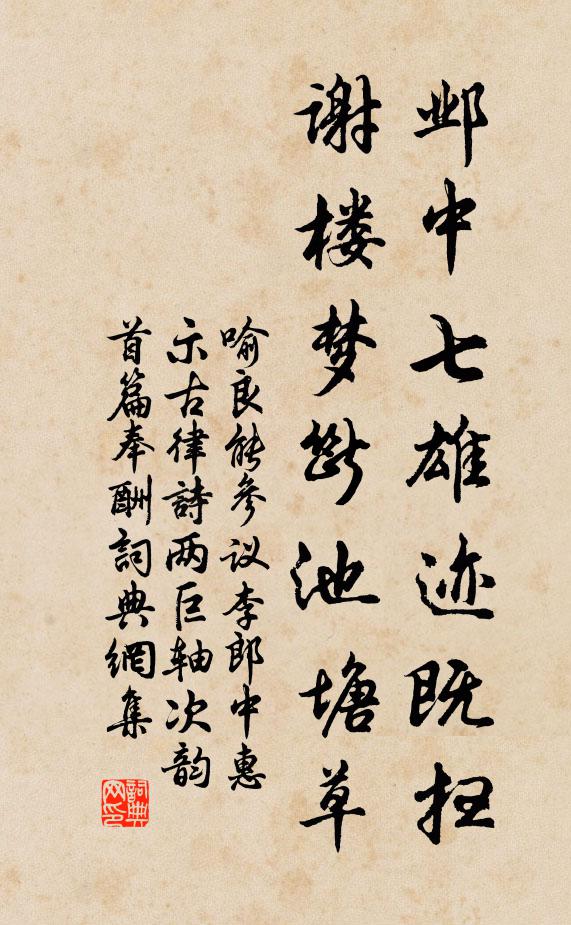 邺中七雄迹既扫
谢楼梦断池塘草
喻良能参议李郎中惠
示古律詩两巨轴次韵
首篇奉酬詞典網集
詞典网印